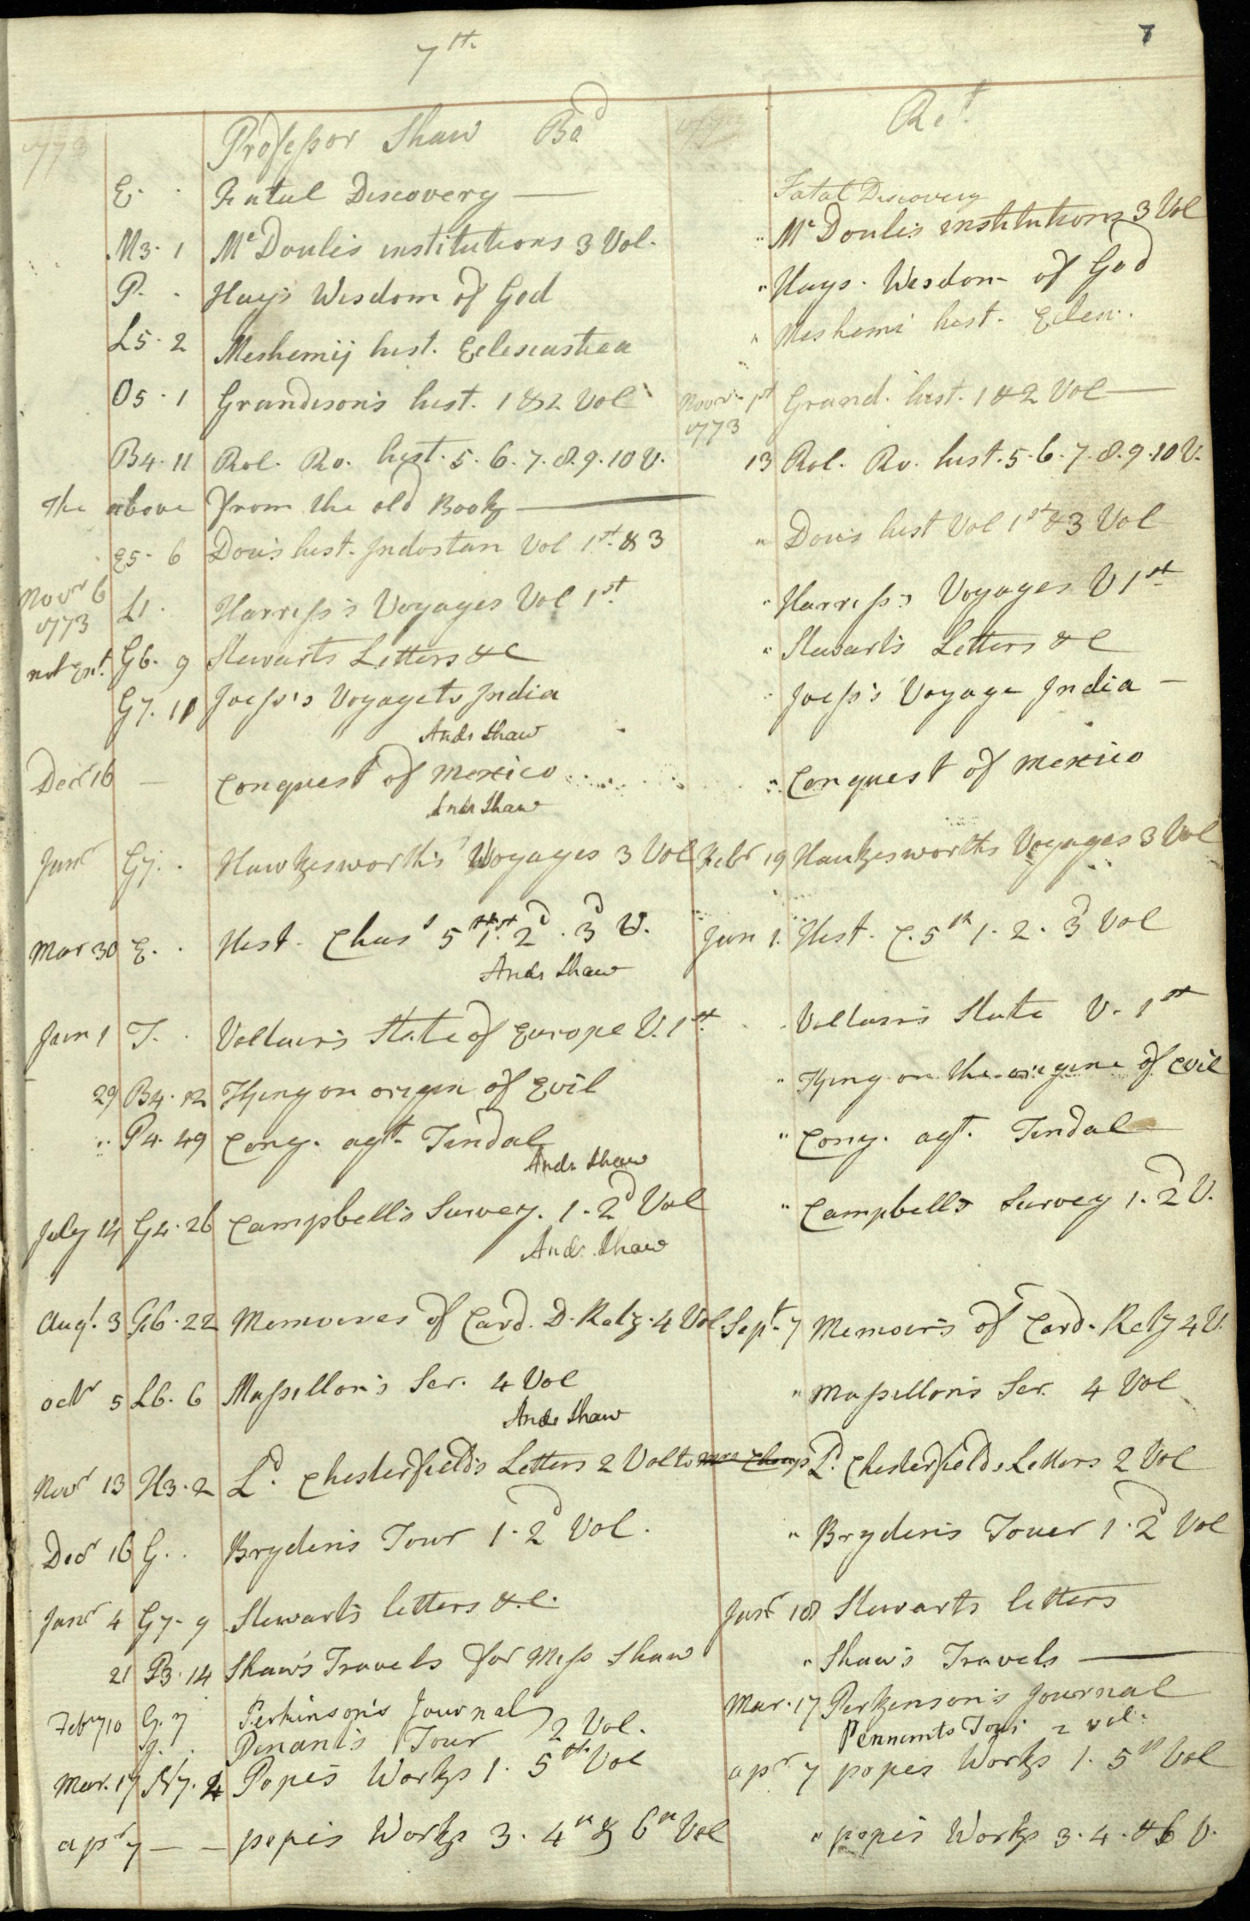 7th.
7
1773 Professor Shaw Bod Ret.
E. . Fatal Discovery — Fatal Discovery
M3. 1 McDoulis institutions 3 Vol. " McDoulis institutions 3 Vol
P. . Hays Wisdom of God " Hays. Wisdom of God
L5. 2 Meshemij hist. Eclesiastica " Meshemi hist. Eclesi.
O5. 1 Grandison's hist. 1 & 2 Vol Novr. 1st 1773 Grand. hist. 1 & 2 Vol —
B4. 11 Rol. Ro. hist. 5. 6. 7. 8. 9. 10 V. 13 Rol. Ro. hist. 5. 6. 7. 8. 9. 10 V.
The above from the old Book —
E5. 6 Dow's hist. Indostan Vol 1st. & 3 " Dow's hist Vol 1st & 3 Vol
Novr 6 1773 L1. Harriss's Voyages Vol 1st. " Harriss's Voyages V 1st
not Ent. G6. 9 Stewarts Letters &c " Stewarts Letters &c
G7. 11 Joess's Voyage to India Joess's Voyage India —
Andr Shaw
Decr 16 — Conquest of Mexico " Conquest of mexico
Andr Shaw
Janr G7. . Hawkesworth's Voyages 3 Vol Febr 19 Haukesworths Voyages 3 Vol
Mar 30 E. . Hist. Chas 5th 1st. 2d. 3d V. Jun 1. Hist. C. 5th 1. 2. 3d Vol
Andr Shaw
Jun 1 T. . Voltair's State of Europe V. 1st. Voltairs State V. 1st
29 B4. 12 Hying on origin of Evil " Hying on the origine of Evil
" P4. 49 Cony. agt. Tindal " Cony. agt. Tindal —
Andr Shaw
July 14 G4. 26 Campbell's Survey. 1. 2d Vol " Campbells Survey 1. 2d V.
Andr. Shaw
Augt. 3 G6. 22 Memoires of Card. D. Retz. 4 Vol. Sept. 7 Memoirs of Card. Retz 4 V.
octr 5 L6. 6 Massillon's Ser. 4 Vol " Massillon's Ser. 4 Vol
Andr Shaw
Novr 13 H3. 2 Ld. Chesterfield's Letters 2 Vol Ld. Chesterfields Letters 2 Vol
Decr 16 G. . Bryden's Tour 1. 2d Vol. " Bryden's Touer 1. 2d Vol
Janr 4 G7. 9 Stewart's letters &c. Janr 18 Stewarts letters
21 P3. 14 Shaw's Travels for Miss Shaw " Shaw's Travels —
Febry 10 G. 7 Perkinson's Journal Mar. 17 Perkenson's Journal
g. . Penant's Tour 2 Vol. Pennents Tour 2 vol.
Mar. 17 N7. 4 Pope's Works 1. 5th. Vol apr 7 popes Works 1. 5th Vol
apr 7 — — pope's Works 3. 4th & 6th Vol " pope's Works 3. 4. & 6 V.